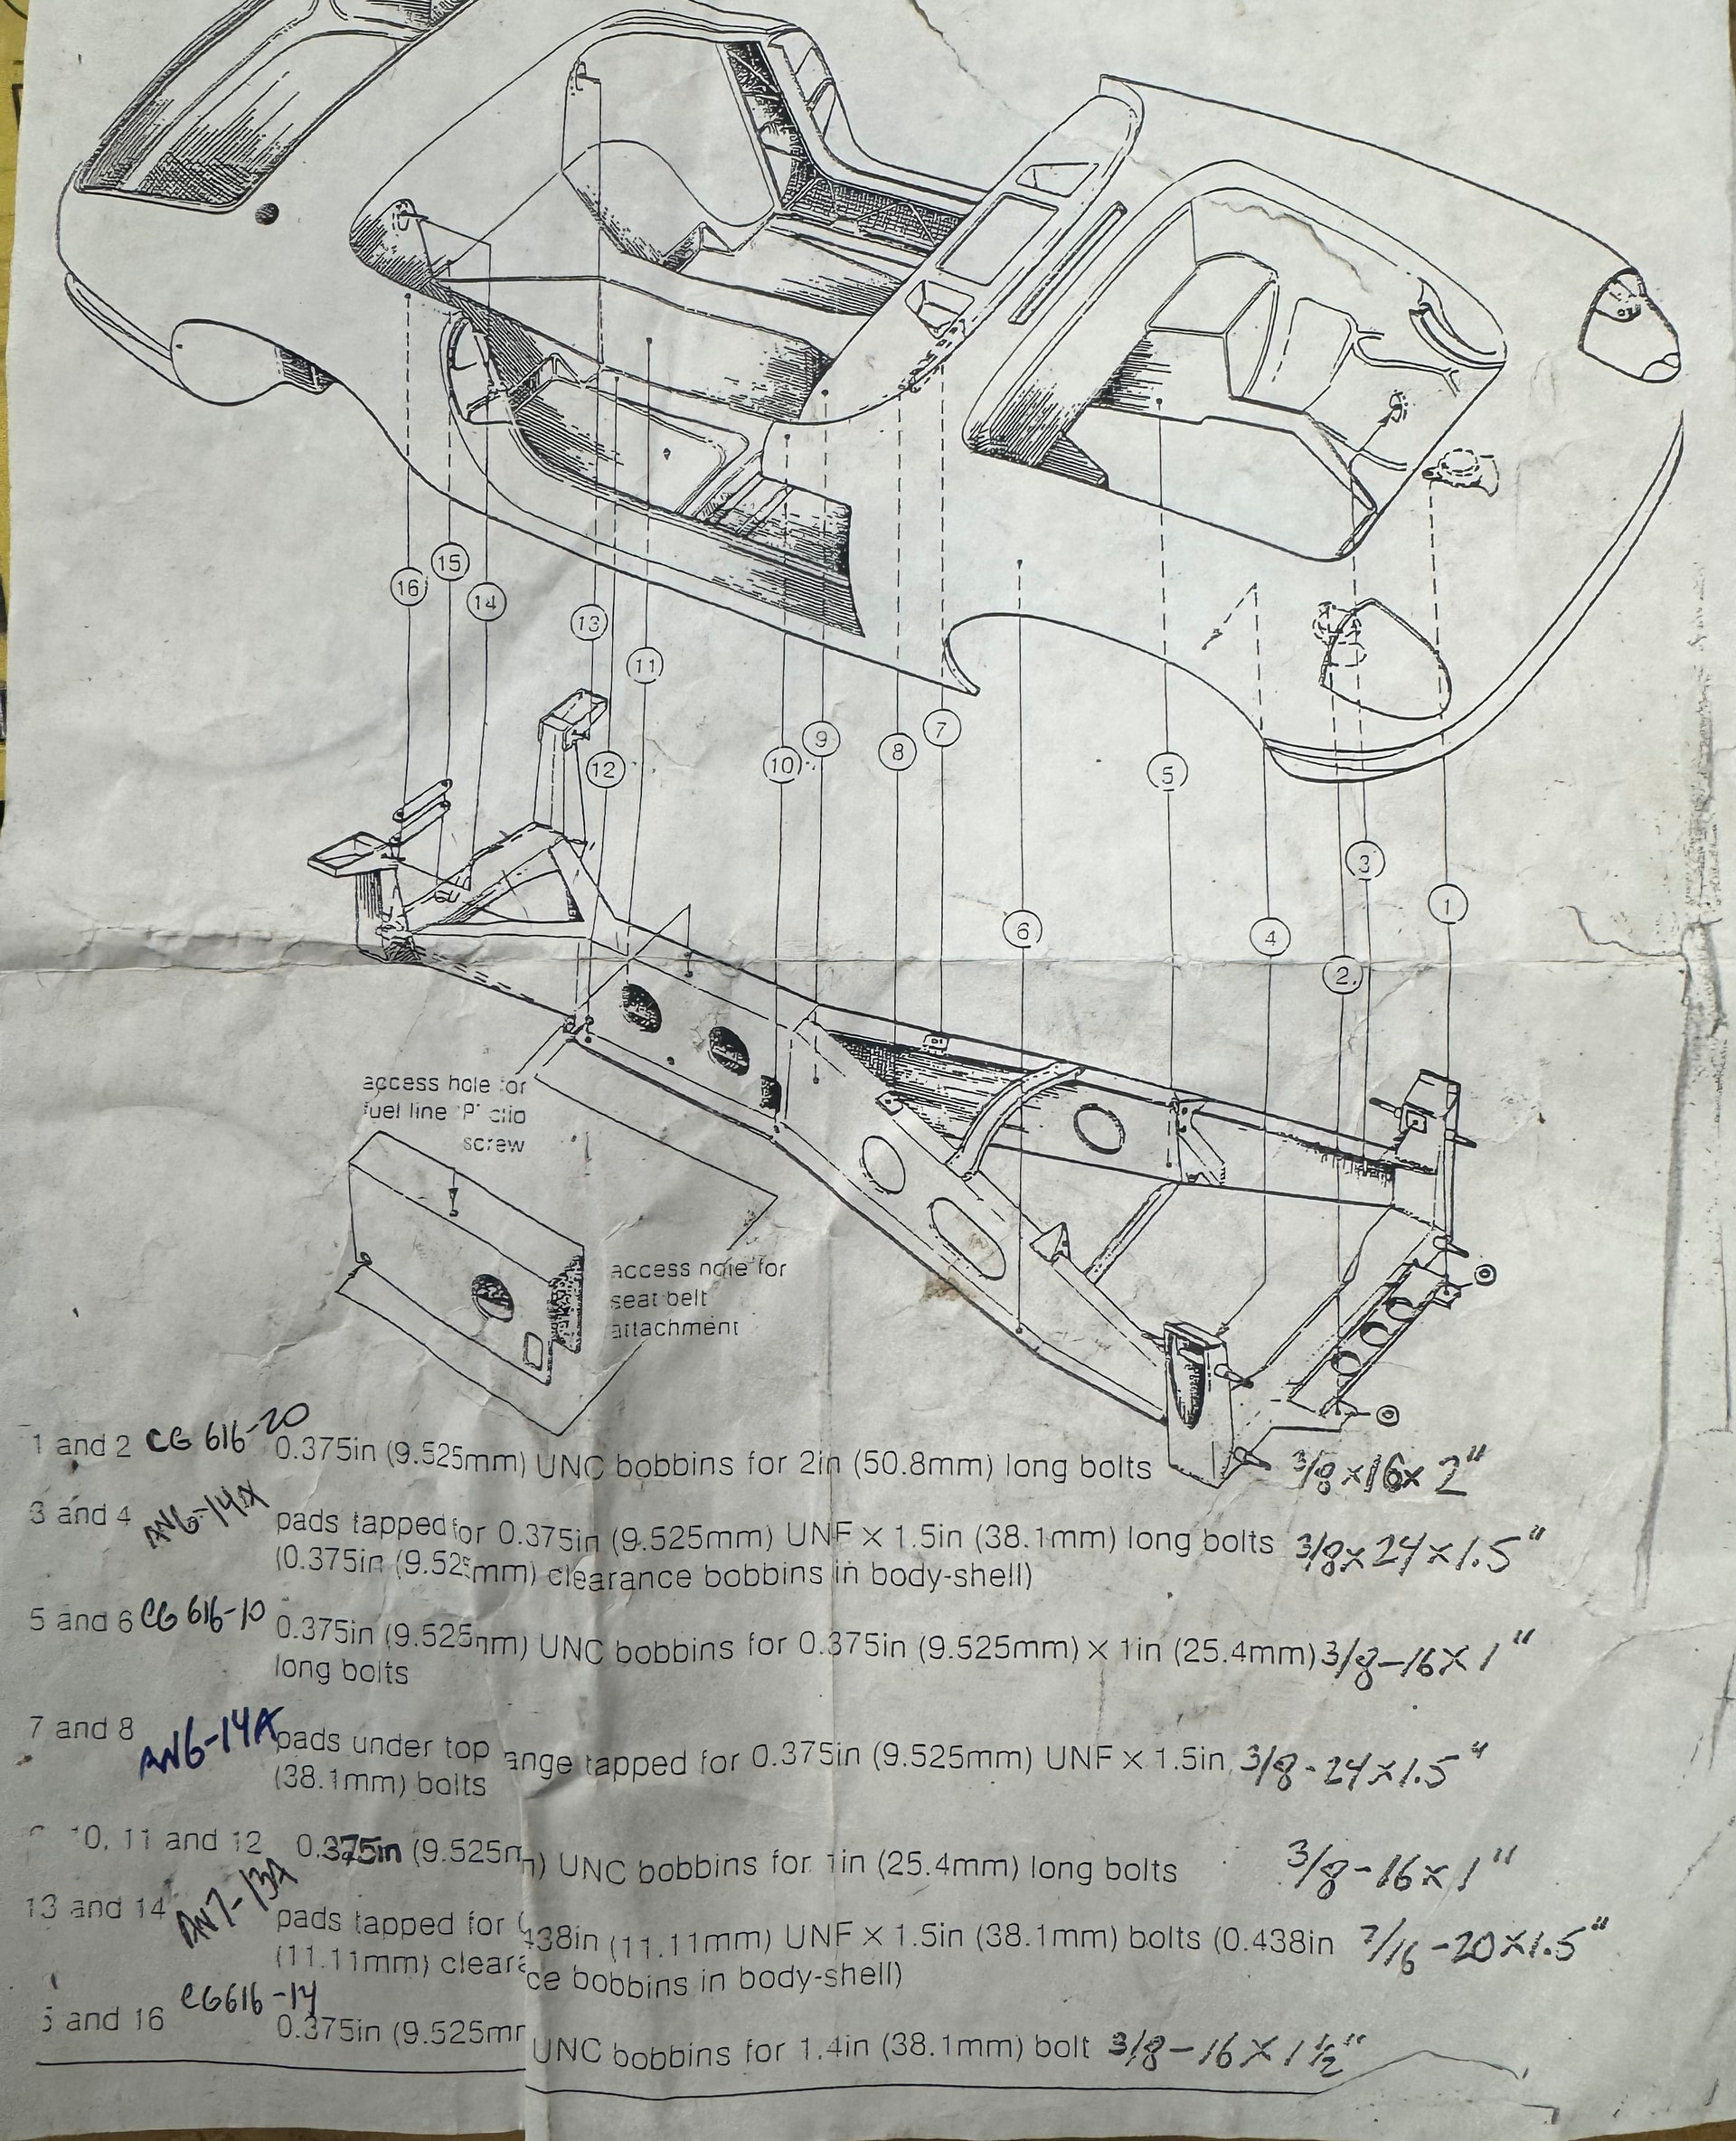 16
15
14
13
11
12
10
9
8
7
5
3
1
6
4
2
access hole for
fuel line 'P' clip
screw
access hole for
seat belt
attachment
1 and 2 CG 616-20 0.375in (9.525mm) UNC bobbins for 2in (50.8mm) long bolts 3/8x16x2"
3 and 4 AN6-14A pads tapped for 0.375in (9.525mm) UNF × 1.5in (38.1mm) long bolts 3/8x24x1.5"
(0.375in (9.525mm) clearance bobbins in body-shell)
5 and 6 CG 616-10 0.375in (9.525mm) UNC bobbins for 0.375in (9.525mm) × 1in (25.4mm) 3/8-16x1"
long bolts
7 and 8 AN6-14A pads under top ange tapped for 0.375in (9.525mm) UNF × 1.5in 3/8-24x1.5"
(38.1mm) bolts
10, 11 and 12 0.375in (9.525m) UNC bobbins for 1in (25.4mm) long bolts 3/8-16x1"
13 and 14 AN7-13A pads tapped for 0.438in (11.11mm) UNF × 1.5in (38.1mm) bolts (0.438in 7/16-20x1.5"
(11.11mm) clearance bobbins in body-shell)
5 and 16 CG616-14 0.375in (9.525mm UNC bobbins for 1.4in (38.1mm) bolt 3/8-16 X 1 1/2"